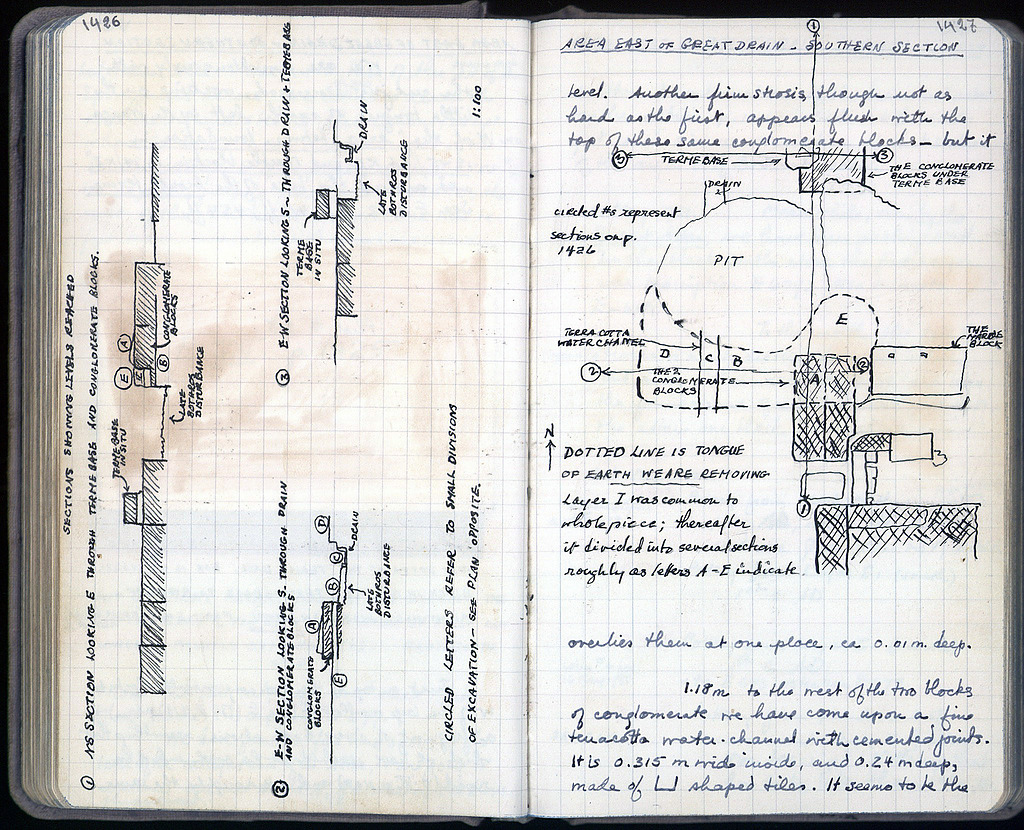 1426
SECTIONS SHOWING LEVELS REACHED
① NS SECTION LOOKING E THROUGH TERME BASE AND CONGLOMERATE BLOCKS.
TERME BASE
IN SITU
LATE
BOTHROS
DISTURBANCE
E
A
B
CONGLOMERATE
BLOCKS
② E-W SECTION LOOKING S. THROUGH DRAIN
AND CONGLOMERATE BLOCKS
CONGLOMERATE
BLOCKS
E
A
B
C
D
DRAIN
LATE
BOTHROS
DISTURBANCE
③ E-W SECTION LOOKING S ~ THROUGH DRAIN + TERME BASE
TERME
BASE
IN SITU
DRAIN
LATE
BOTHROS
DISTURBANCE
1:100
CIRCLED LETTERS REFER TO SMALL DIVISIONS
OF EXCAVATION - SEE PLAN OPPOSITE.
1427
AREA EAST OF GREAT DRAIN - SOUTHERN SECTION
level. Another firm strosis, though not as
hard as the first, appears flush with the
top of these same conglomerate blocks - but it
①
③
TERME BASE
③
THE CONGLOMERATE
BLOCKS UNDER
TERME BASE
DRAIN
circled #s represent
sections on p.
1426
PIT
E
TERRA COTTA
WATER CHANNEL
THE MARBLE
BLOCK
D
C
B
A
②
②
THE 2
CONGLOMERATE
BLOCKS
N
①
DOTTED LINE IS TONGUE
OF EARTH WE ARE REMOVING
Layer I was common to
whole piece; thereafter
it divided into several sections
roughly as letters A-E indicate.
overlies them at one place, ca 0.01 m. deep.
1.18 m to the west of the two blocks
of conglomerate we have come upon a fine
terracotta water-channel with cemented joints.
It is 0.315 m wide inside, and 0.24 m deep,
made of ⊔ shaped tiles. It seems to be the